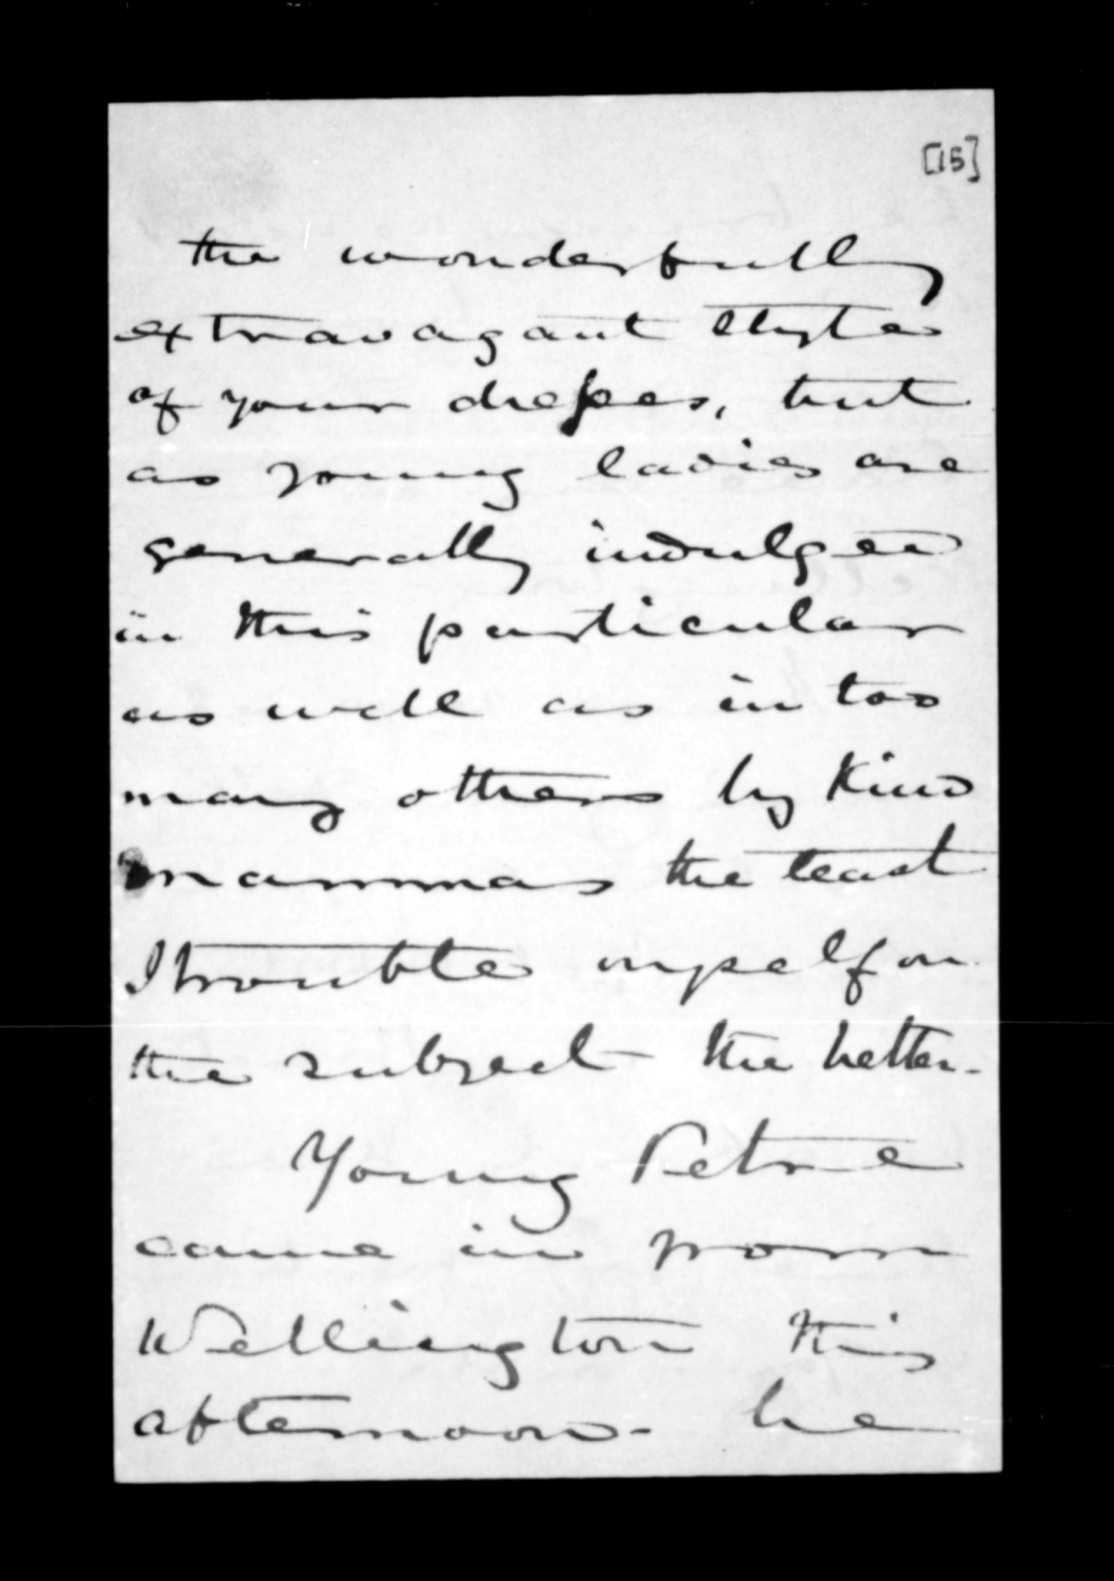 [15]
the wonderfully
extravagant style
of your dresses, but
as young ladies are
generally indulged
in this particular
as well as in too
many others by kind
mammas the least
I trouble myself on
the subject the better.
Young Petre
came in from
Wellington this
afternoon - he